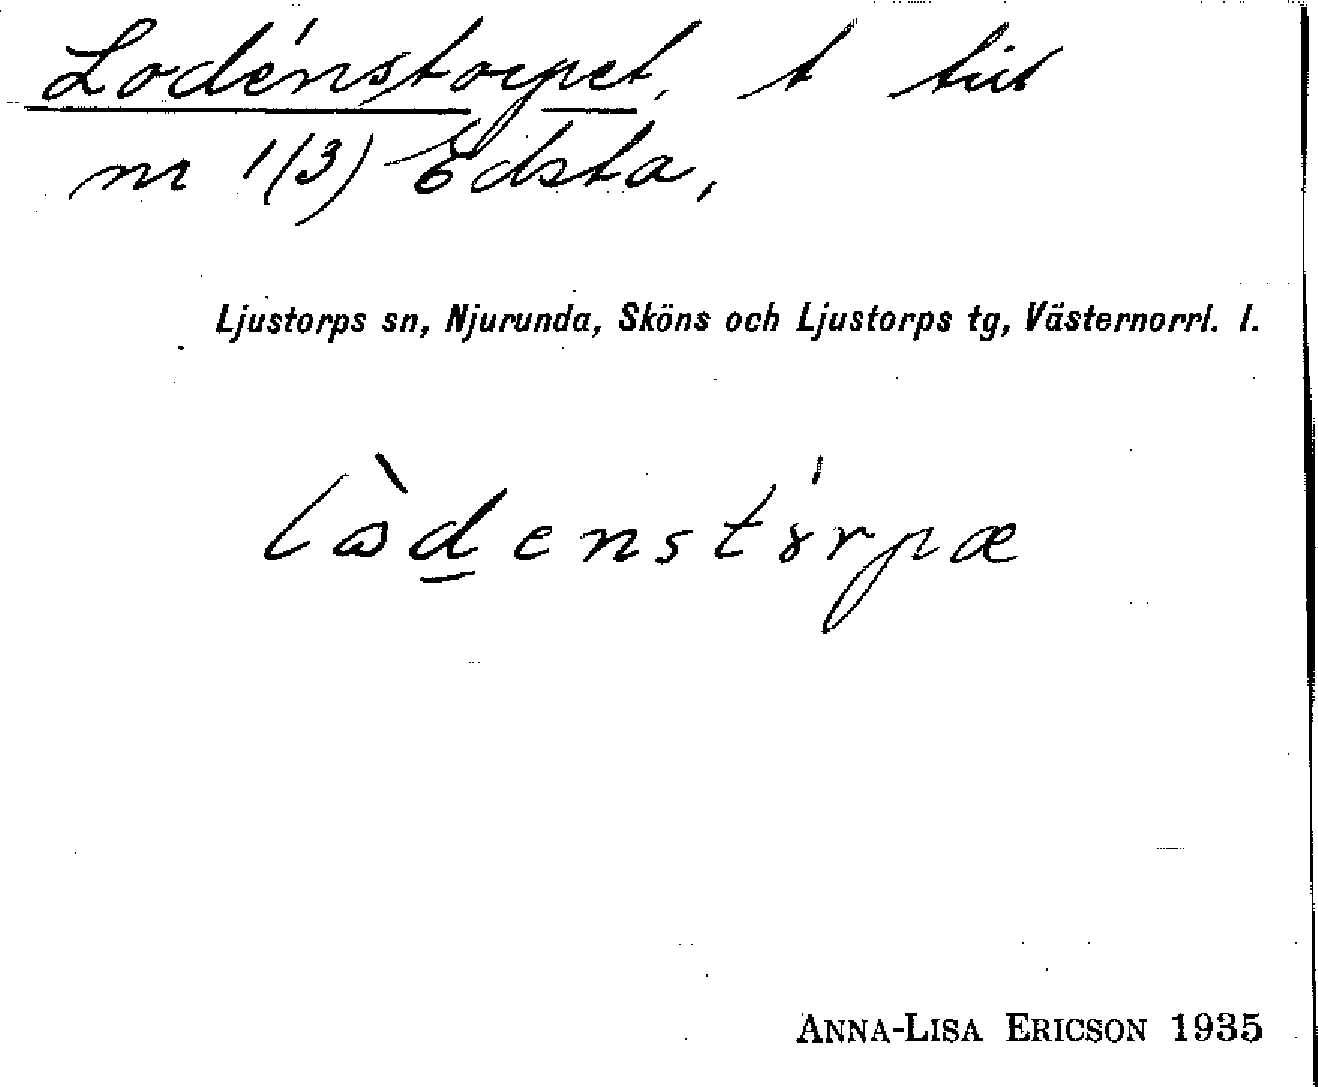 Lodénstorpet, t till
nr 1(3) Edsta,
Ljustorps sn, Njurunda, Sköns och Ljustorps tg, Västernorrl. l.
ANNA-LISA ERICSON 1935